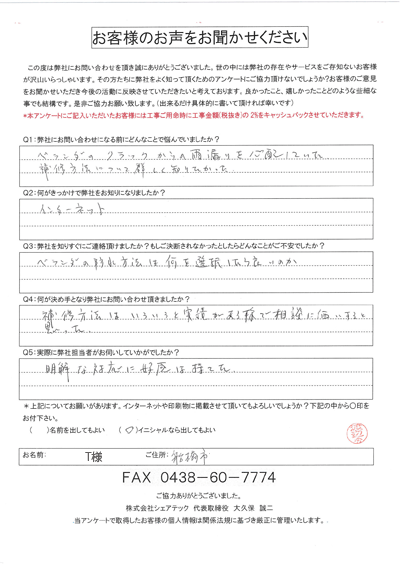 お客様のお声をお聞かせください
この度は弊社にお問い合わせを頂き誠にありがとうございました。世の中には弊社の存在やサービスをご存知ないお客様
が沢山いらっしゃいます。その方たちに弊社をよく知って頂くためのアンケートにご協力頂けないでしょうか？お客様のご意見
をお聞かせいただき今後の活動に反映させていただきたいと考えております。良かったこと、嬉しかったことどのような些細な
事でも結構です。是非ご協力お願い致します。（出来るだけ具体的に書いて頂ければ幸いです）
*本アンケートにご記入いただいたお客様には工事ご用命時に工事金額(税抜き)の2%をキャッシュバックさせていただきます。
Q1：弊社にお問い合わせになる前にどんなことで悩んでいましたか？
ベランダのクラックからの雨漏りを心配していた
補修方法について詳しく知りたかった
Q2：何がきっかけで弊社をお知りになりましたか？
インターネット
Q3：弊社を知りすぐにご連絡頂けましたか？もしご決断されなかったとしたらどんなことがご不安でしたか？
ベランダの防水方法は何を選択したら良いのか
Q4：何が決め手となり弊社にお問い合わせ頂きましたか？
補修方法はいろいろと実績がある様で相談に値いすると
思った
Q5：実際に弊社担当者がお伺いしていかがでしたか？
明解な対応に好感は持てた
＊上記についてお願いがあります。インターネットや印刷物に掲載させて頂いてもよろしいでしょうか？下記の中から○印を
お付下さい。
（　）名前を出してもよい　（○）イニシャルなら出してもよい
お名前：　T様　ご住所：　船橋市
FAX 0438-60-7774
ご協力ありがとうございました。
株式会社シェアテック 代表取締役 大久保 誠二
当アンケートで取得したお客様の個人情報は関係法規に基づき厳正に管理いたします。